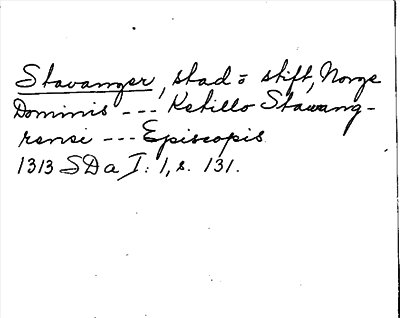 Stavanger, stad o stift, Norge
Dominis --- Ketillo Stawang-
rensi --- Episcopis
1313 SD a I: 1, s. 131.